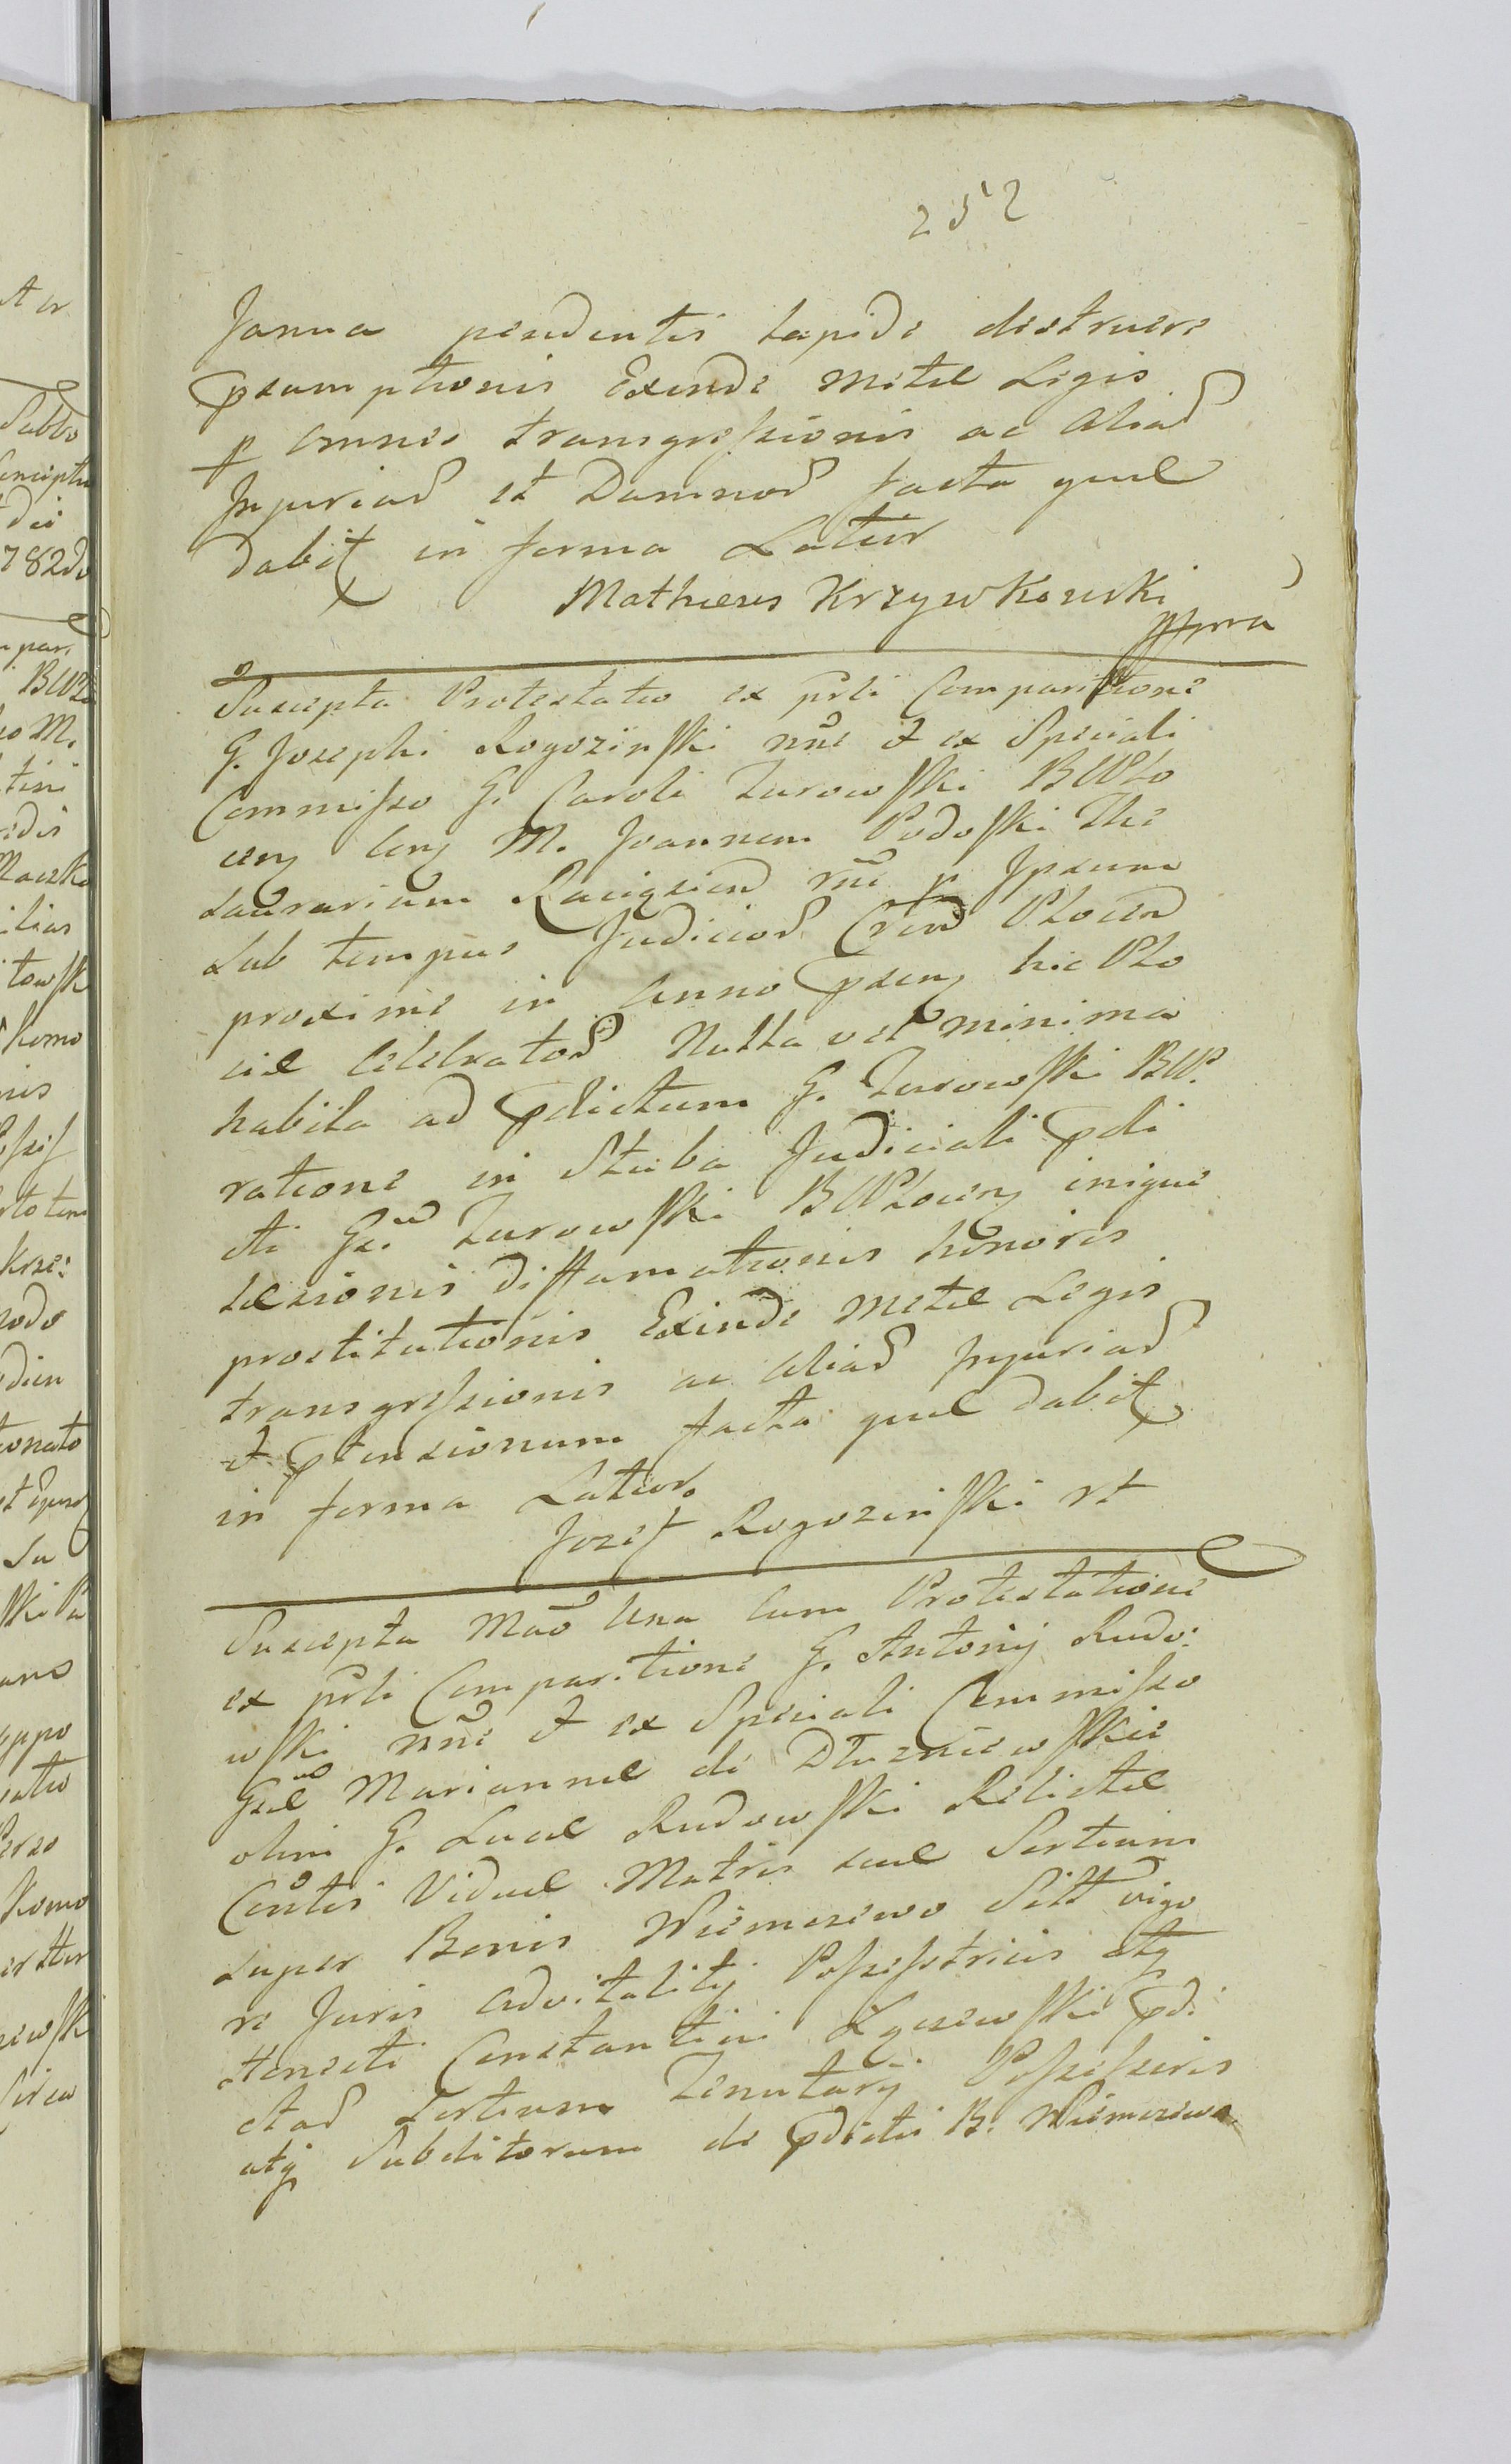 252
Janua pendentis lapide destruere
psumptionis Exinde Metae Legis
p omnes transgressionis ac aliad
Injuriad et Damnod facta quae
dabit in forma Latior
Mathaeus Krzywkowski
mpra
Suscepta Protestatio ex pnti Comparitione
G. Josephi Rogozinski nne et ex Speciali
Commisso G. Caroli Zurowski BWPło
cen con M. Joannem Podoski The
saurarium Raciązien rne p Ipsum
sub tempus Judiciod Cren Plocen
proxime in Anno psen hic Pło
ciae celebratod Nulla vel minima
habita ad pdictum G. Zurowski BW.
ratione in Stuba Judiciali pdi
cti Gsi Zurowski BWPłocen inique
laesionis diffamationis honoris
prostitutionis Exinde Metae Legis
transgressionis ac aliad Injuriad
et ptensionum facta quae dabit
in forma Latior.
Jozef Rogozinski rt
Suscepta Mao Una cum Protestatione
ex pnti Comparitione G. Antonij Rudo:
wski nne et ex Speciali Commisso
Gsae Mariannae de Dłuzniewskie
olim G. Lucae Rudowski Relictae
Contis Viduae Matris suae Sortium
super Bonis Niemszewo Sitt vigo
re Juris advitalitij Possessetricis atq
Honesti Constantini Łyszewski pdi
ctad Sortium Tenutarij Possessoris
atq Subditorum de pdictis B. Niemszewo